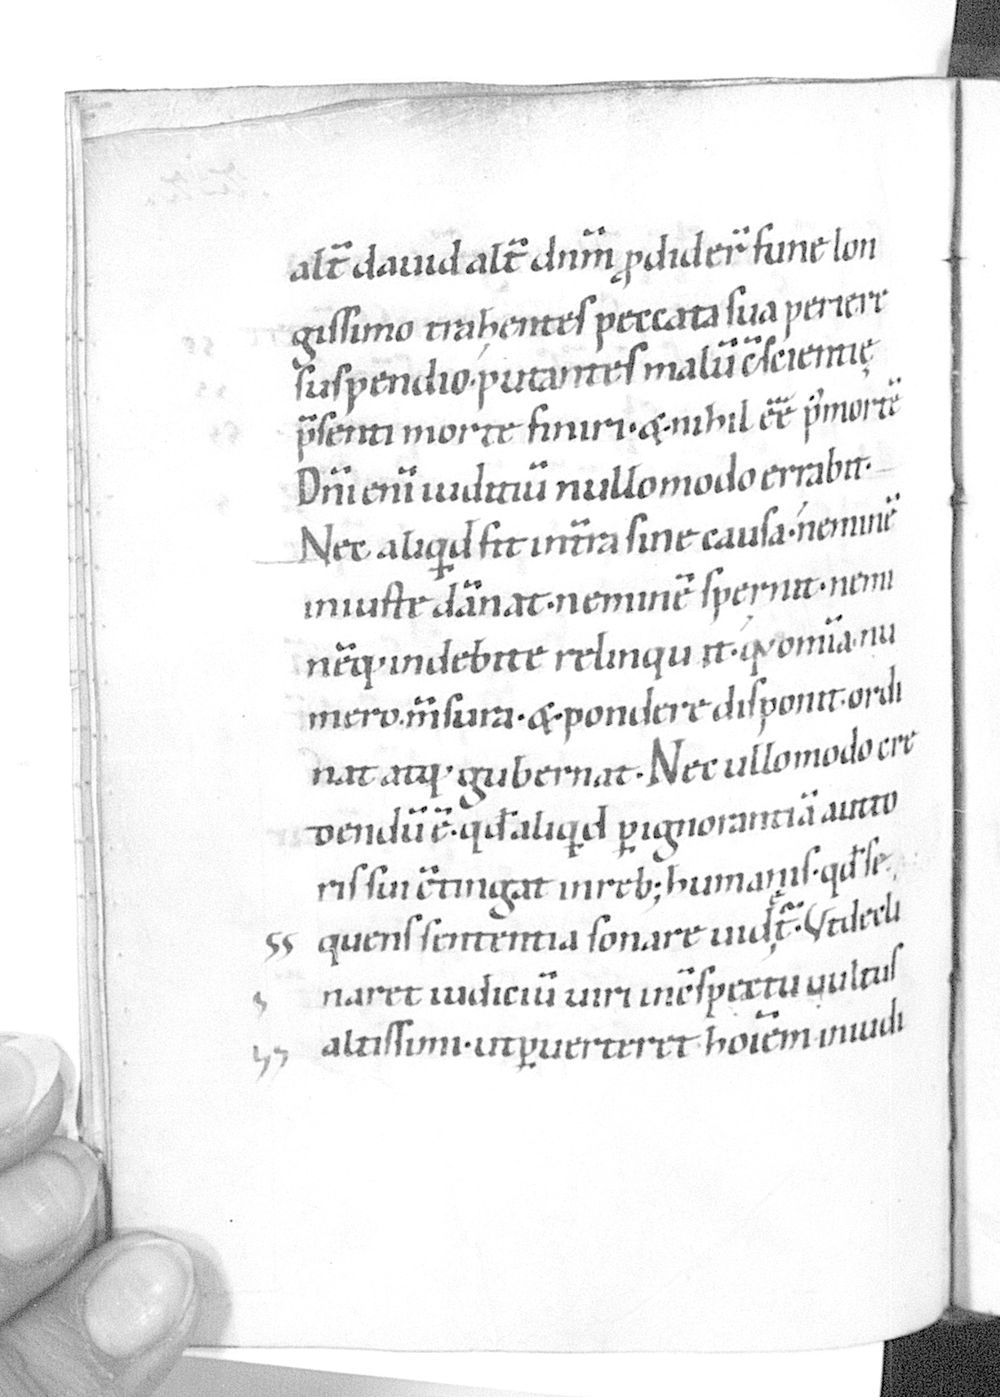 alt̄ dauid alt̄ dnm̄ ꝓdider̄ fune lon
gissimo trahentes peccata sua periere
suspendio· putantes malū c̄scientię
p̄senti morte finiri· &· nihil ēē p' mortē
Dnī enī iuditiū nullo modo errabit·
Nec aliqd fit in tr̄ra sine causa· neminē
iniuste dānat· neminē spernit· nemi
nēq; indebite relinquit· qi omīa· nu
mero· m̄sura· &· pondere disponit· ordi
nat atq; gubernat· Nec ullo modo cre
dendū ē· qd aliqd ꝑ ignorantiā aucto
ris sui c̄tingat in reb; humanis· qd se
quens sententia sonare uidt̄· Ut decli
naret iudiciū uiri in c̄spectu uultus
altissimi· ut ꝑuerteret hoīem in iudi